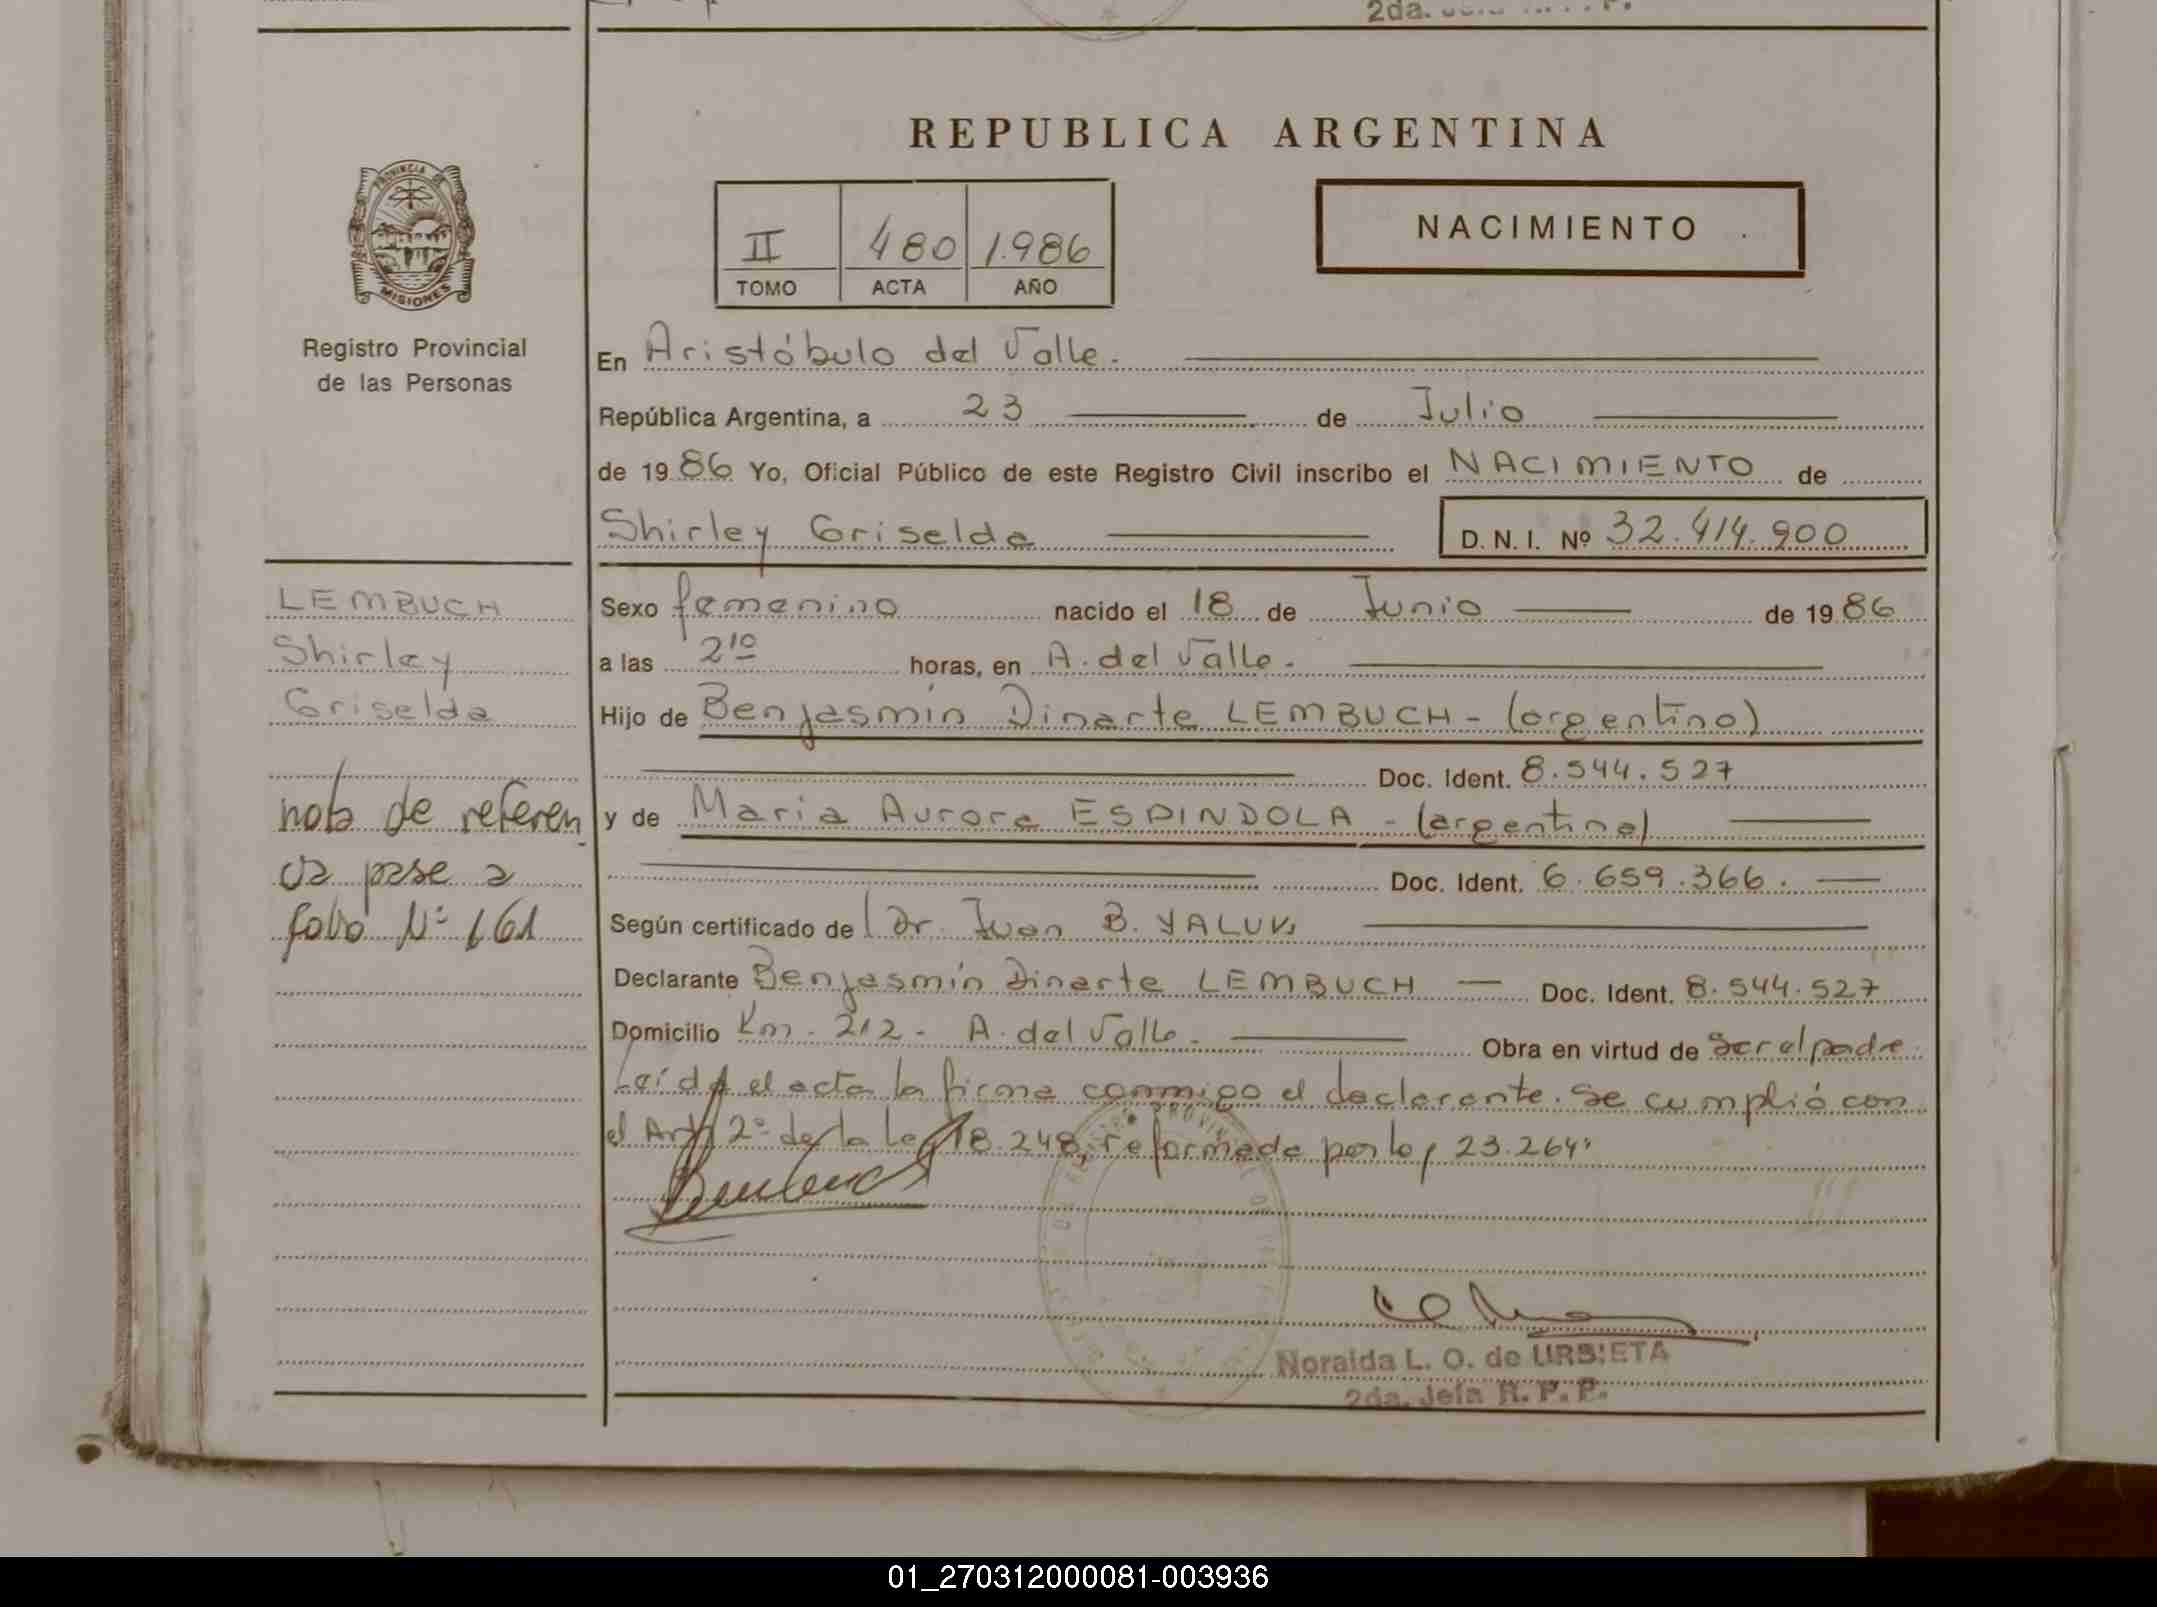 2da.
REPUBLICA ARGENTINA
PROVINCIA DE
MISIONES
II 480 1.986
TOMO ACTA AÑO
NACIMIENTO
Registro Provincial
de las Personas
En Aristóbulo del Valle.
República Argentina, a 23 de Julio
de 1986 Yo, Oficial Público de este Registro Civil inscribo el NACIMIENTO de
Shirley Griselda D. N. I. Nº 32.414.900
LEMBUCH
Shirley
Griselda
nota de referen
cia pase a
folio Nº 161
Sexo femenino nacido el 18 de Junio de 1986
a las 2¹⁰ horas, en A. del Valle.
Hijo de Benjasmín Dinarte LEMBUCH - (argentino)
Doc. Ident. 8.544.527
y de Maria Aurora ESPINDOLA - (argentina)
Doc. Ident. 6.659.366.
Según certificado de Dr. Juan B. YALUK
Declarante Benjasmín Dinarte LEMBUCH Doc. Ident. 8.544.527
Domicilio Km. 212 - A. del Valle. Obra en virtud de Ser el padre.
Leída el acta la firma conmigo el declarante. Se cumplió con
el Art. 2º de la Ley 18.248, reformada por ley 23.264.
Noraida L. O. de URBIETA
2da. Jefa R. P. P.
01_270312000081-003936